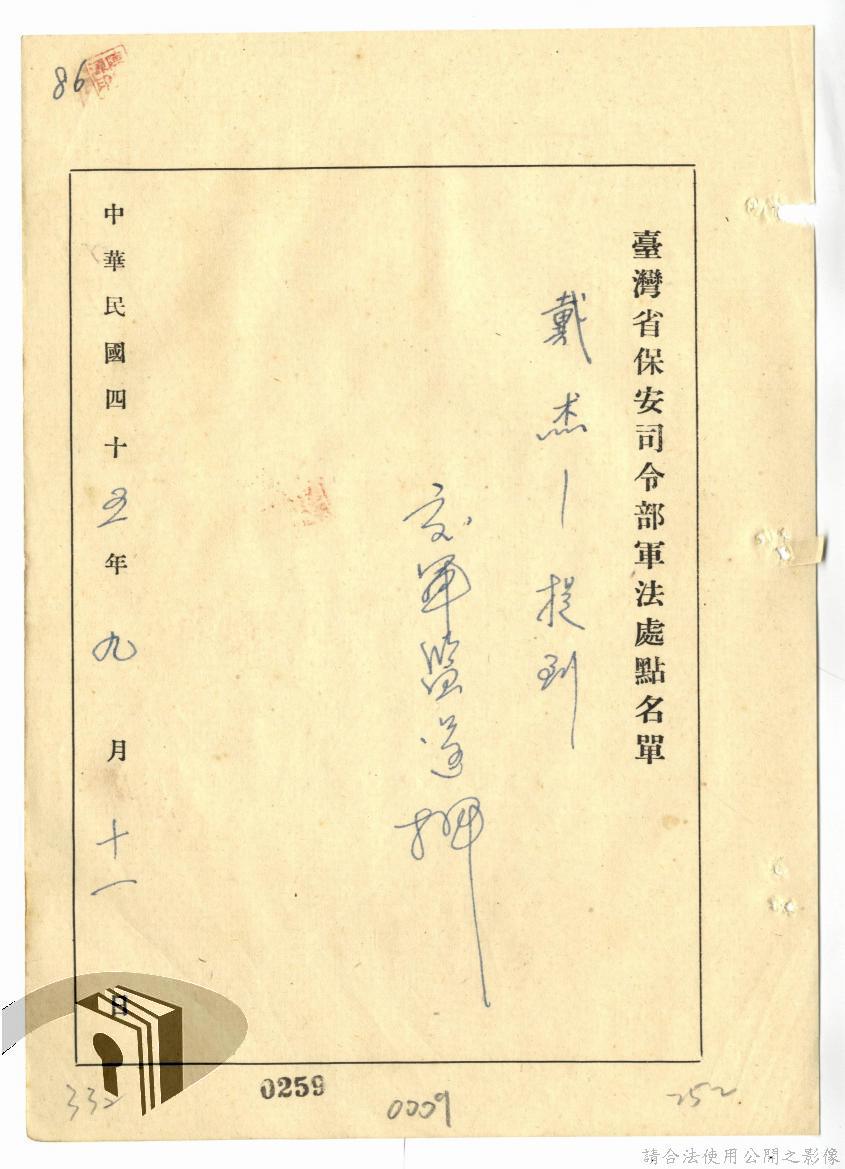 86
臺灣省保安司令部軍法處點名單
戴杰 提到
交軍監還押
中華民國四十五年九月十一日
332
0259
0009
252
請合法使用公開之影像